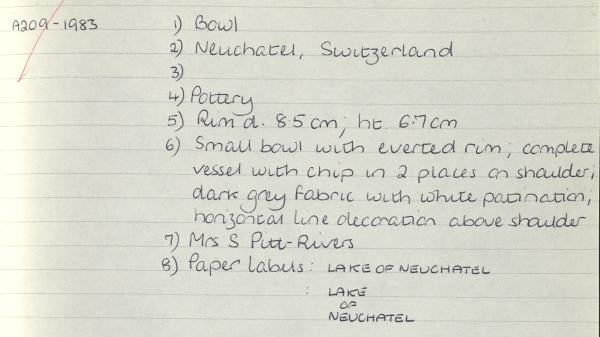 A209-1983 1) Bowl
2) Neuchatel, Switzerland
3)
4) Pottery
5) Rim d. 8.5 cm; ht. 6.7 cm
6) Small bowl with everted rim; complete
vessel with chip in 2 places on shoulder;
dark grey fabric with white patination;
horizontal line decoration above shoulder
7) Mrs S Pitt-Rivers
8) Paper labels: LAKE OF NEUCHATEL
: LAKE
OF
NEUCHATEL